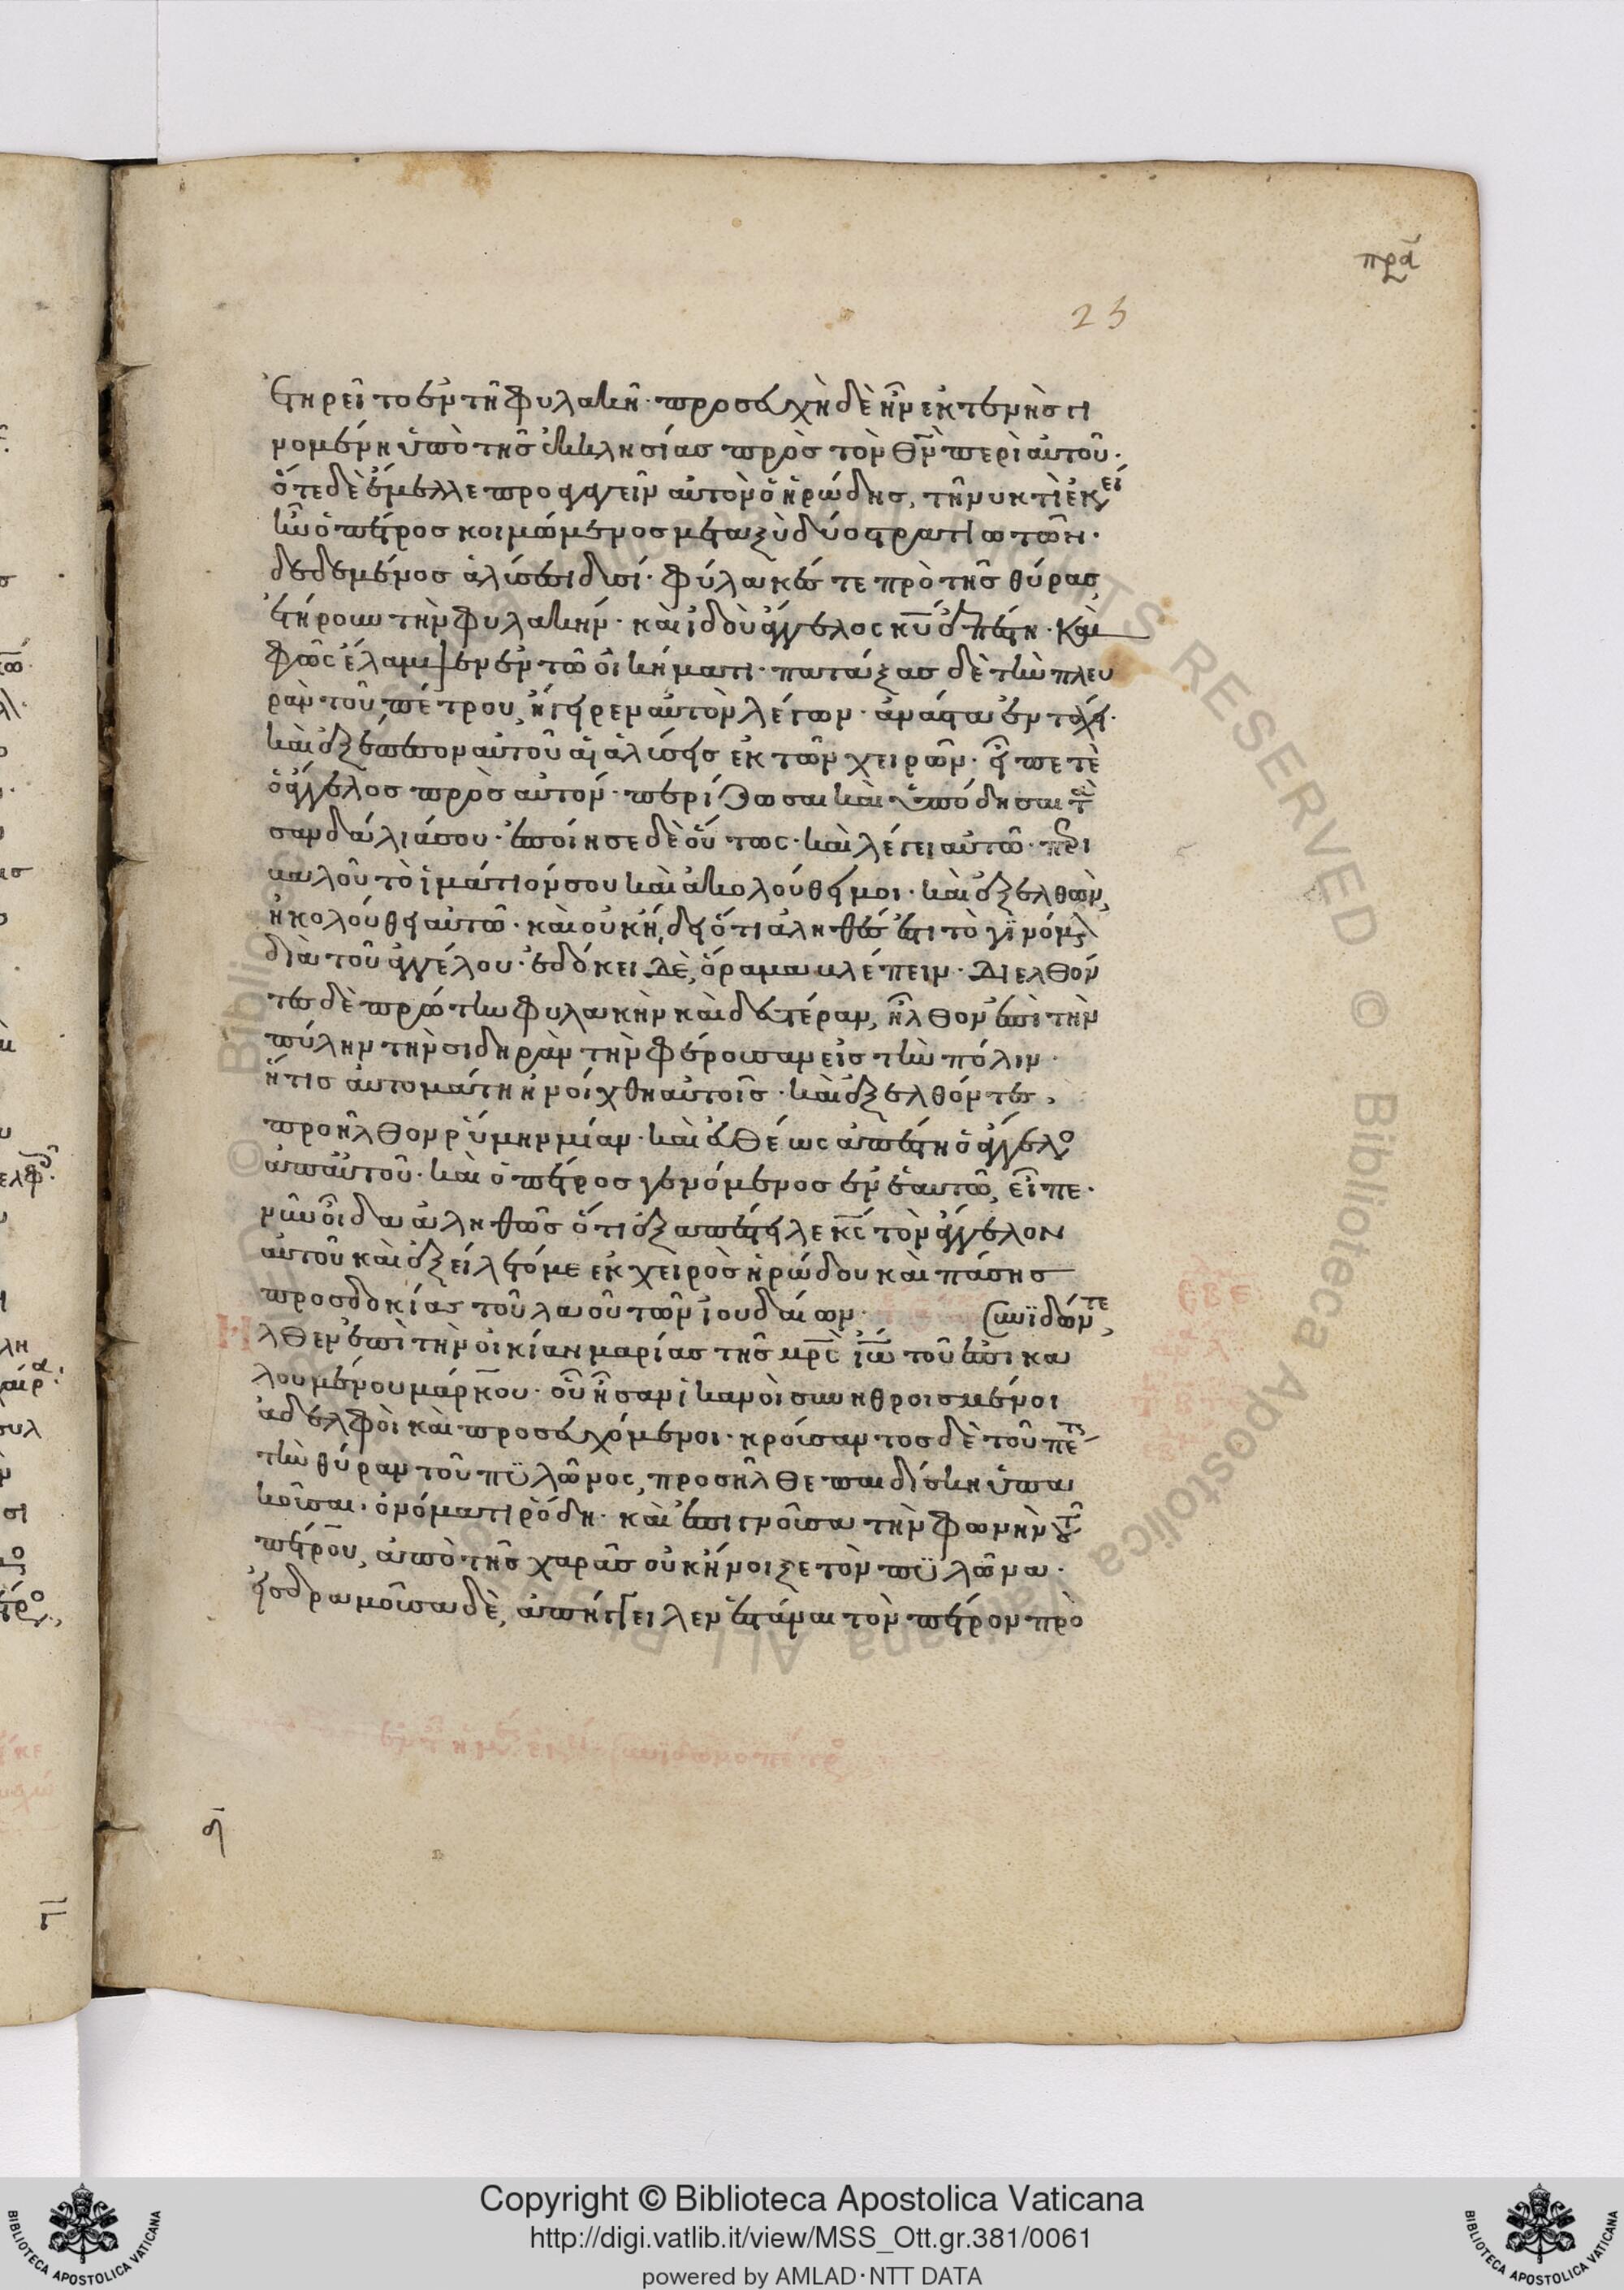 πρα
23
ἐτηρεῖτο ἐν τῆ φυλακῆ· προσευχὴ δὲ ἦν ἐκτενὴς γι
νομένη ὑπὸ τῆς ἐκκλησίας πρὸς τὸν θν περὶ αὐτοῦ·
ὅτε δὲ ἔμελλε προαγαγεῖν αὐτὸν ὁ ἡρώδης, τῆ νυκτὶ ἐκεί
νη ἦν ὁ πέτρος κοιμώμενος μεταξὺ δύο στρατιωτῶν·
δεδεμένος ἁλύσεσι δυσί· φύλακές τε πρὸ τῆς θύρας
ἐτήρουν τὴν φυλακήν· καὶ ἰδοὺ ἄγγελος κυ ἐπέστη· καὶ
φῶς ἔλαμψεν ἐν τῶ οἰκήματι· πατάξας δὲ τὴν πλευ
ρὰν τοῦ πέτρου, ἤγειρεν αὐτὸν λέγων· ἀνάστα ἐν τάχει·
καὶ ἐξέπεσον αὐτοῦ αἱ ἁλύσεις ἐκ τῶν χειρῶν· εἶπέ τε
ὁ ἄγγελος πρὸς αὐτόν· περίζωσαι καὶ ὑπόδησαι τὰ
σανδάλιά σου· ἐποίησε δὲ οὕτως· καὶ λέγει αὐτῶ· περι
βαλοῦ τὸ ἱμάτιόν σου καὶ ἀκολούθει μοι· καὶ ἐξελθὼν,
ἠκολούθει αὐτῶ· καὶ οὐκ ἤδει ὅτι ἀληθές ἐστι τὸ γινόμε
διὰ τοῦ ἀγγέλου· ἐδόκει δὲ, ὅραμα βλέπειν· διελθόν
τες δὲ πρώτην φυλακὴν καὶ δευτέραν, ἦλθον ἐπὶ τὴν
πύλην τὴν σιδηρὰν τὴν φέρουσαν εἰς τὴν πόλιν·
ἥτις αὐτομάτη ἠνοίχθη αὐτοῖς· καὶ ἐξελθόντες,
προῆλθον ῥύμην μίαν· καὶ εὐθέως ἀπέστη ὁ ἄγγελο
ἀπ αὐτοῦ· καὶ ὁ πέτρος γενόμενος ἐν ἑαυτῶ, εἶπε·
νῦν οἶδα ἀληθῶς ὅτι ἐξαπέστειλε κς τὸν ἄγγελον
αὐτοῦ καὶ ἐξείλετό με ἐκ χειρὸς ἡρώδου καὶ πάσης
προσδοκίας τοῦ λαοῦ τῶν ἰουδαίων· συνϊδών τε,
Ηλθεν ἐπὶ τὴν οἰκίαν μαρίας τῆς μρς ἰω τοῦ ἐπικα
λουμένου μάρκου· οὗ ἦσαν ἱκανοὶ συνηθροισμένοι
ἀδελφοὶ καὶ προσευχόμενοι· κρούσαντος δὲ τοῦ πετ
τὴν θύραν τοῦ πϋλῶνος, προσῆλθε παιδίσκη ὑπα
κοῦσαι· ὀνόματι ῥόδη· καὶ ἐπιγνοῦσα τὴν φωνὴν τοῦ
πέτρου, ἀπὸ τῆς χαρᾶς οὐκ ἤνοιξε τὸν πϋλῶνα·
εἰσδραμοῦσα δὲ, ἀπήγγειλεν ἑστάναι τὸν πέτρον πρὸ
Copyright © Biblioteca Apostolica Vaticana
http://digi.vatlib.it/view/MSS_Ott.gr.381/0061
powered by AMLAD·NTT DATA
BIBLIOTECA APOSTOLICA VATICANA
BIBLIOTECA APOSTOLICA VATICANA